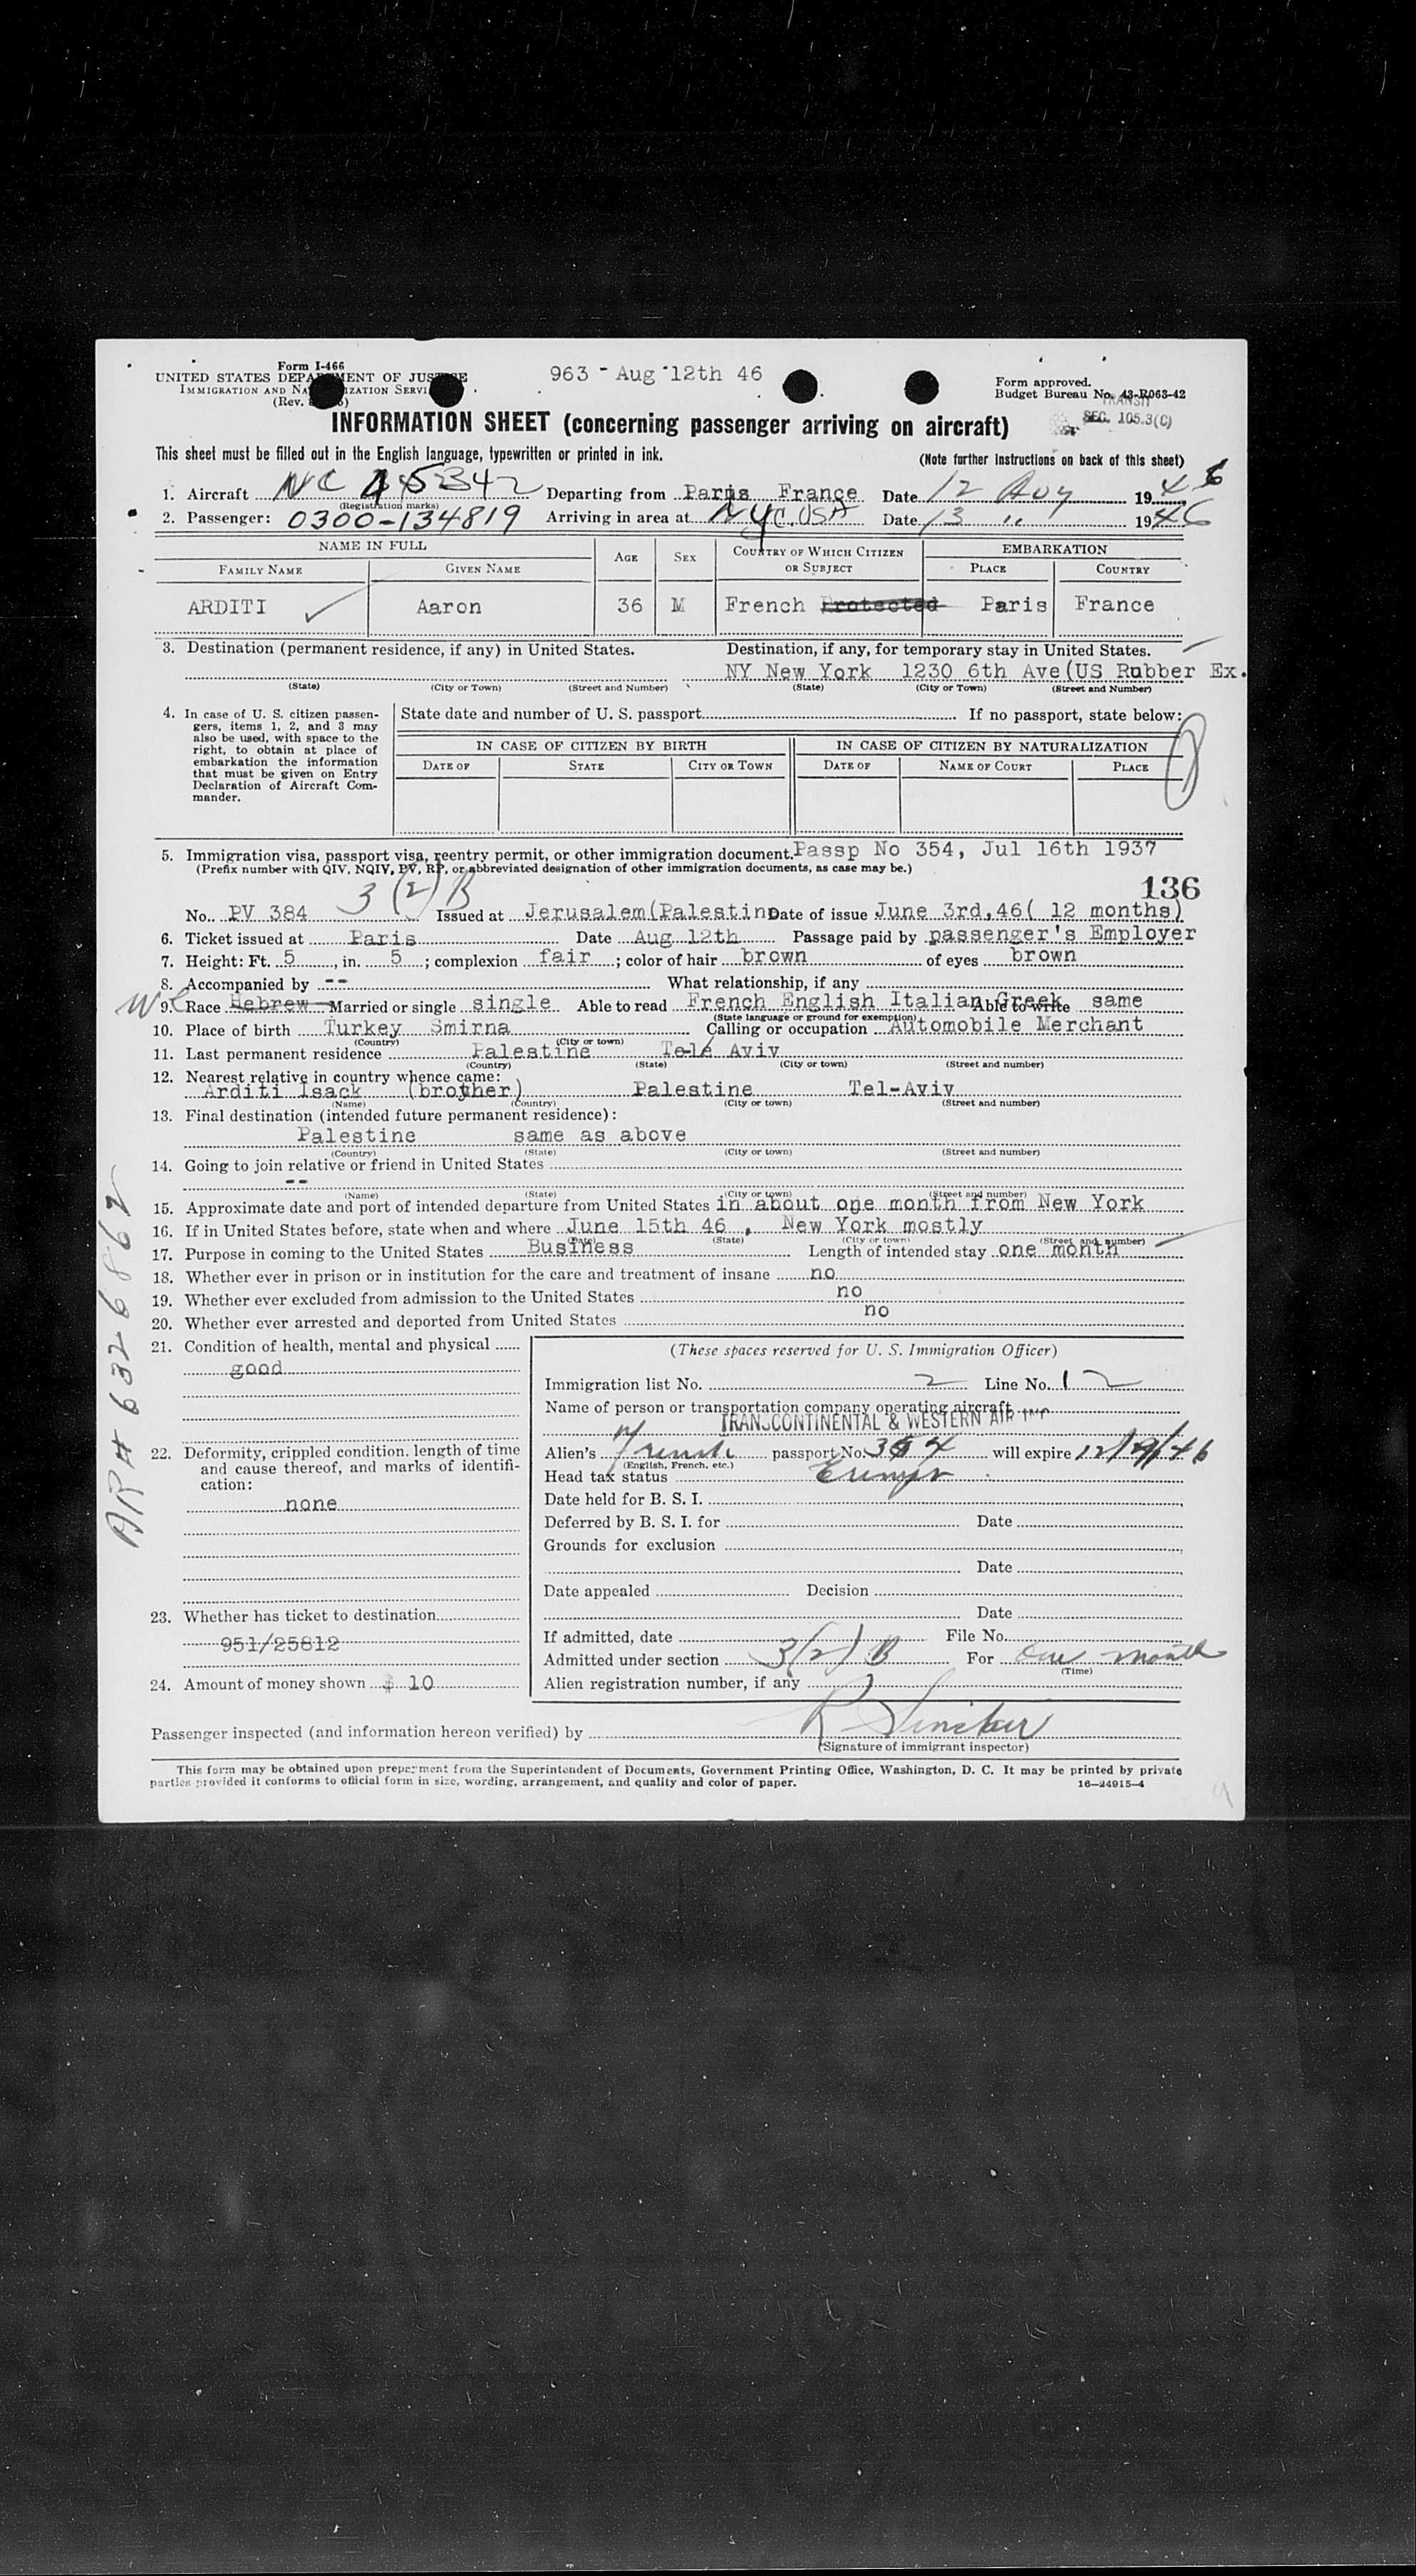 Form I-466
UNITED STATES DEPARTMENT OF JUSTICE
IMMIGRATION AND NATURALIZATION SERVICE
(Rev.
963 - Aug 12th 46
Form approved.
Budget Bureau No. 43-R063-42
TRANSIT
SEC. 105.3(C)
INFORMATION SHEET (concerning passenger arriving on aircraft)
This sheet must be filled out in the English language, typewritten or printed in ink.
(Note further instructions on back of this sheet)
1. Aircraft NC 45342 Departing from Paris France Date 12 Aug 1946
(Registration marks)
2. Passenger: 0300-134819 Arriving in area at NYC. USA Date 13 " 1946
NAME IN FULL AGE SEX COUNTRY OF WHICH CITIZEN OR SUBJECT EMBARKATION
FAMILY NAME GIVEN NAME PLACE COUNTRY
ARDITI Aaron 36 M French Protected Paris France
3. Destination (permanent residence, if any) in United States. Destination, if any, for temporary stay in United States.
NY New York 1230 6th Ave(US Rubber Ex.
(State) (City or Town) (Street and Number) (State) (City or Town) (Street and Number)
4. In case of U. S. citizen passengers, items 1, 2, and 3 may also be used, with space to the right, to obtain at place of embarkation the information that must be given on Entry Declaration of Aircraft Commander.
State date and number of U. S. passport If no passport, state below:
IN CASE OF CITIZEN BY BIRTH IN CASE OF CITIZEN BY NATURALIZATION
DATE OF STATE CITY OR TOWN DATE OF NAME OF COURT PLACE
5. Immigration visa, passport visa, reentry permit, or other immigration document. Passp No 354, Jul 16th 1937
(Prefix number with QIV, NQIV, PV, RP, or abbreviated designation of other immigration documents, as case may be.)
136
3(2)B
No. PV 384 Issued at Jerusalem(Palestine Date of issue June 3rd,46( 12 months)
6. Ticket issued at Paris Date Aug 12th Passage paid by passenger's Employer
7. Height: Ft. 5, in. 5; complexion fair; color of hair brown of eyes brown
8. Accompanied by -- What relationship, if any
9. Race Hebrew Married or single single Able to read French English Italian Greek Able to write same
(State language or ground for exemption)
10. Place of birth Turkey Smirna Calling or occupation Automobile Merchant
(Country) (City or town)
11. Last permanent residence Palestine Tel Aviv
(Country) (State) (City or town) (Street and number)
12. Nearest relative in country whence came:
Arditi Isack (brother) Palestine Tel-Aviv
(Name) (Country) (City or town) (Street and number)
13. Final destination (intended future permanent residence):
Palestine same as above
(Country) (State) (City or town) (Street and number)
14. Going to join relative or friend in United States
--
(Name) (State) (City or town) (Street and number)
15. Approximate date and port of intended departure from United States in about one month from New York
16. If in United States before, state when and where June 15th 46, New York mostly
(Date) (State) (City or town) (Street and number)
17. Purpose in coming to the United States Business Length of intended stay one month
18. Whether ever in prison or in institution for the care and treatment of insane no
19. Whether ever excluded from admission to the United States no
20. Whether ever arrested and deported from United States no
21. Condition of health, mental and physical
good
22. Deformity, crippled condition, length of time and cause thereof, and marks of identification:
none
23. Whether has ticket to destination
951/25812
24. Amount of money shown $ 10
(These spaces reserved for U. S. Immigration Officer)
Immigration list No. 2 Line No. 12
Name of person or transportation company operating aircraft
TRANSCONTINENTAL & WESTERN AIR INC
Alien's French passport No. 354 will expire 12/19/46
(English, French, etc.)
Head tax status Exempt
Date held for B. S. I.
Deferred by B. S. I. for Date
Grounds for exclusion
Date
Date appealed Decision
Date
If admitted, date File No.
Admitted under section 3(2) B For One month
(Time)
Alien registration number, if any
Passenger inspected (and information hereon verified) by R Sinclair
(Signature of immigrant inspector)
This form may be obtained upon prepayment from the Superintendent of Documents, Government Printing Office, Washington, D. C. It may be printed by private
parties provided it conforms to official form in size, wording, arrangement, and quality and color of paper. 16-24915-4
AR# 6326862